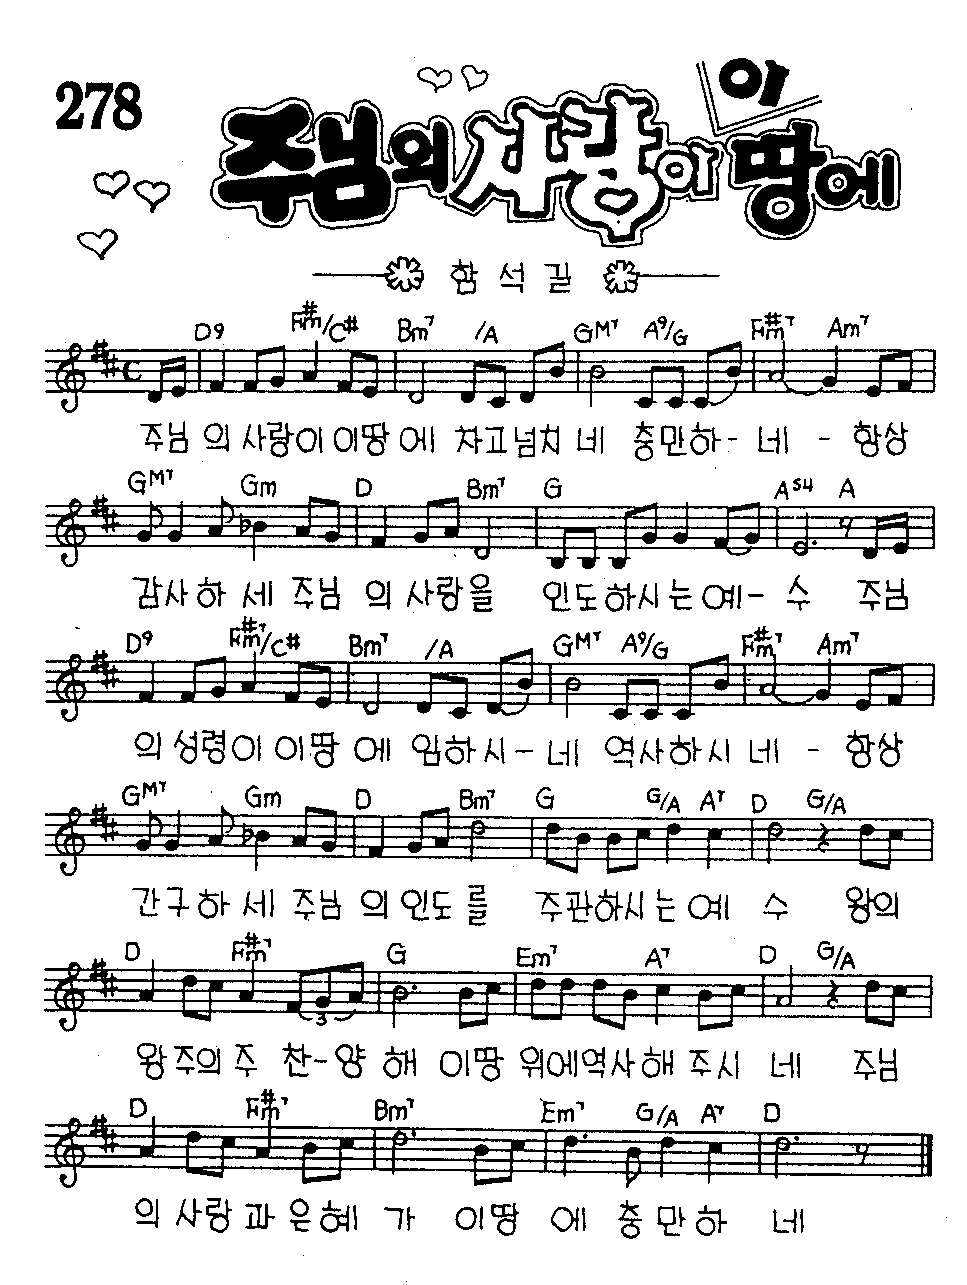 278
주님의 사랑이 이 땅에
함 석 길
D9 F#m/C# Bm7 /A GM7 A9/G F#m7 Am7
주님 의 사랑이 이땅 에 차고넘치 네 충만하 - 네 - 항상
GM7 Gm D Bm7 G AS4 A
감사하 세 주님 의 사랑을 인도하시는 예 - 수 주님
D9 F#m7/C# Bm7 /A GM7 A9/G F#m7 Am7
의 성령이 이땅 에 임하시 - 네 역사하시 네 - 항상
GM7 Gm D Bm7 G G/A A7 D G/A
간구하 세 주님 의 인도를 주관하시는 예 수 왕의
D F#m7 G Em7 A7 D G/A
왕주의 주 찬 - 양 해 이땅 위에역사해 주시 네 주님
3
D F#m7 Bm7 Em7 G/A A7 D
의 사랑 과 은혜 가 이땅 에 충만하 네